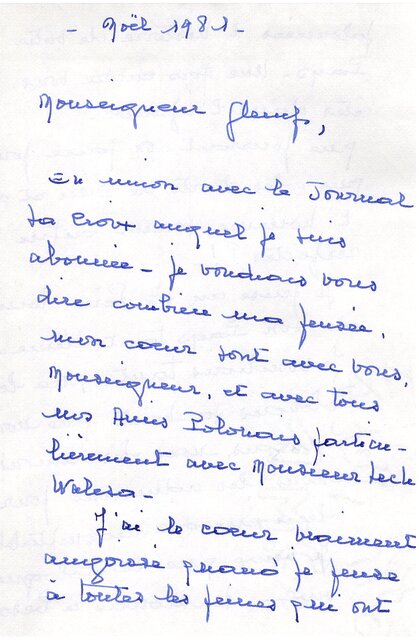 - Noël 1981 -
Monseigneur Glemp,
En union avec le Journal
La Croix auquel je suis
abonnée - je voudrais vous
dire combien ma pensée,
mon cœur sont avec vous,
Monseigneur, et avec tous
nos Amis Polonais particu-
lièrement avec Monsieur Lech
Walesa -
J'ai le cœur vraiment
angoissé quand je pense
à toutes les peines qui ont